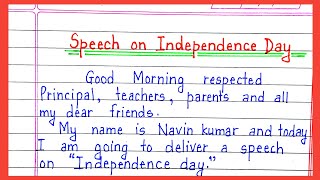 Speech on Independence Day
Good Morning respected
Principal, teachers, parents and all
my dear friends.
My name is Navin kumar and today
I am going to deliver a speech
on "Independence day."